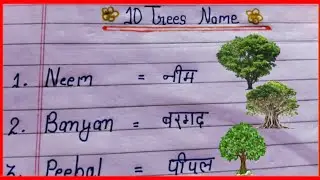 10 Trees Name
1. Neem = नीम
2. Banyan = बरगद
3. Peebal = पीपल